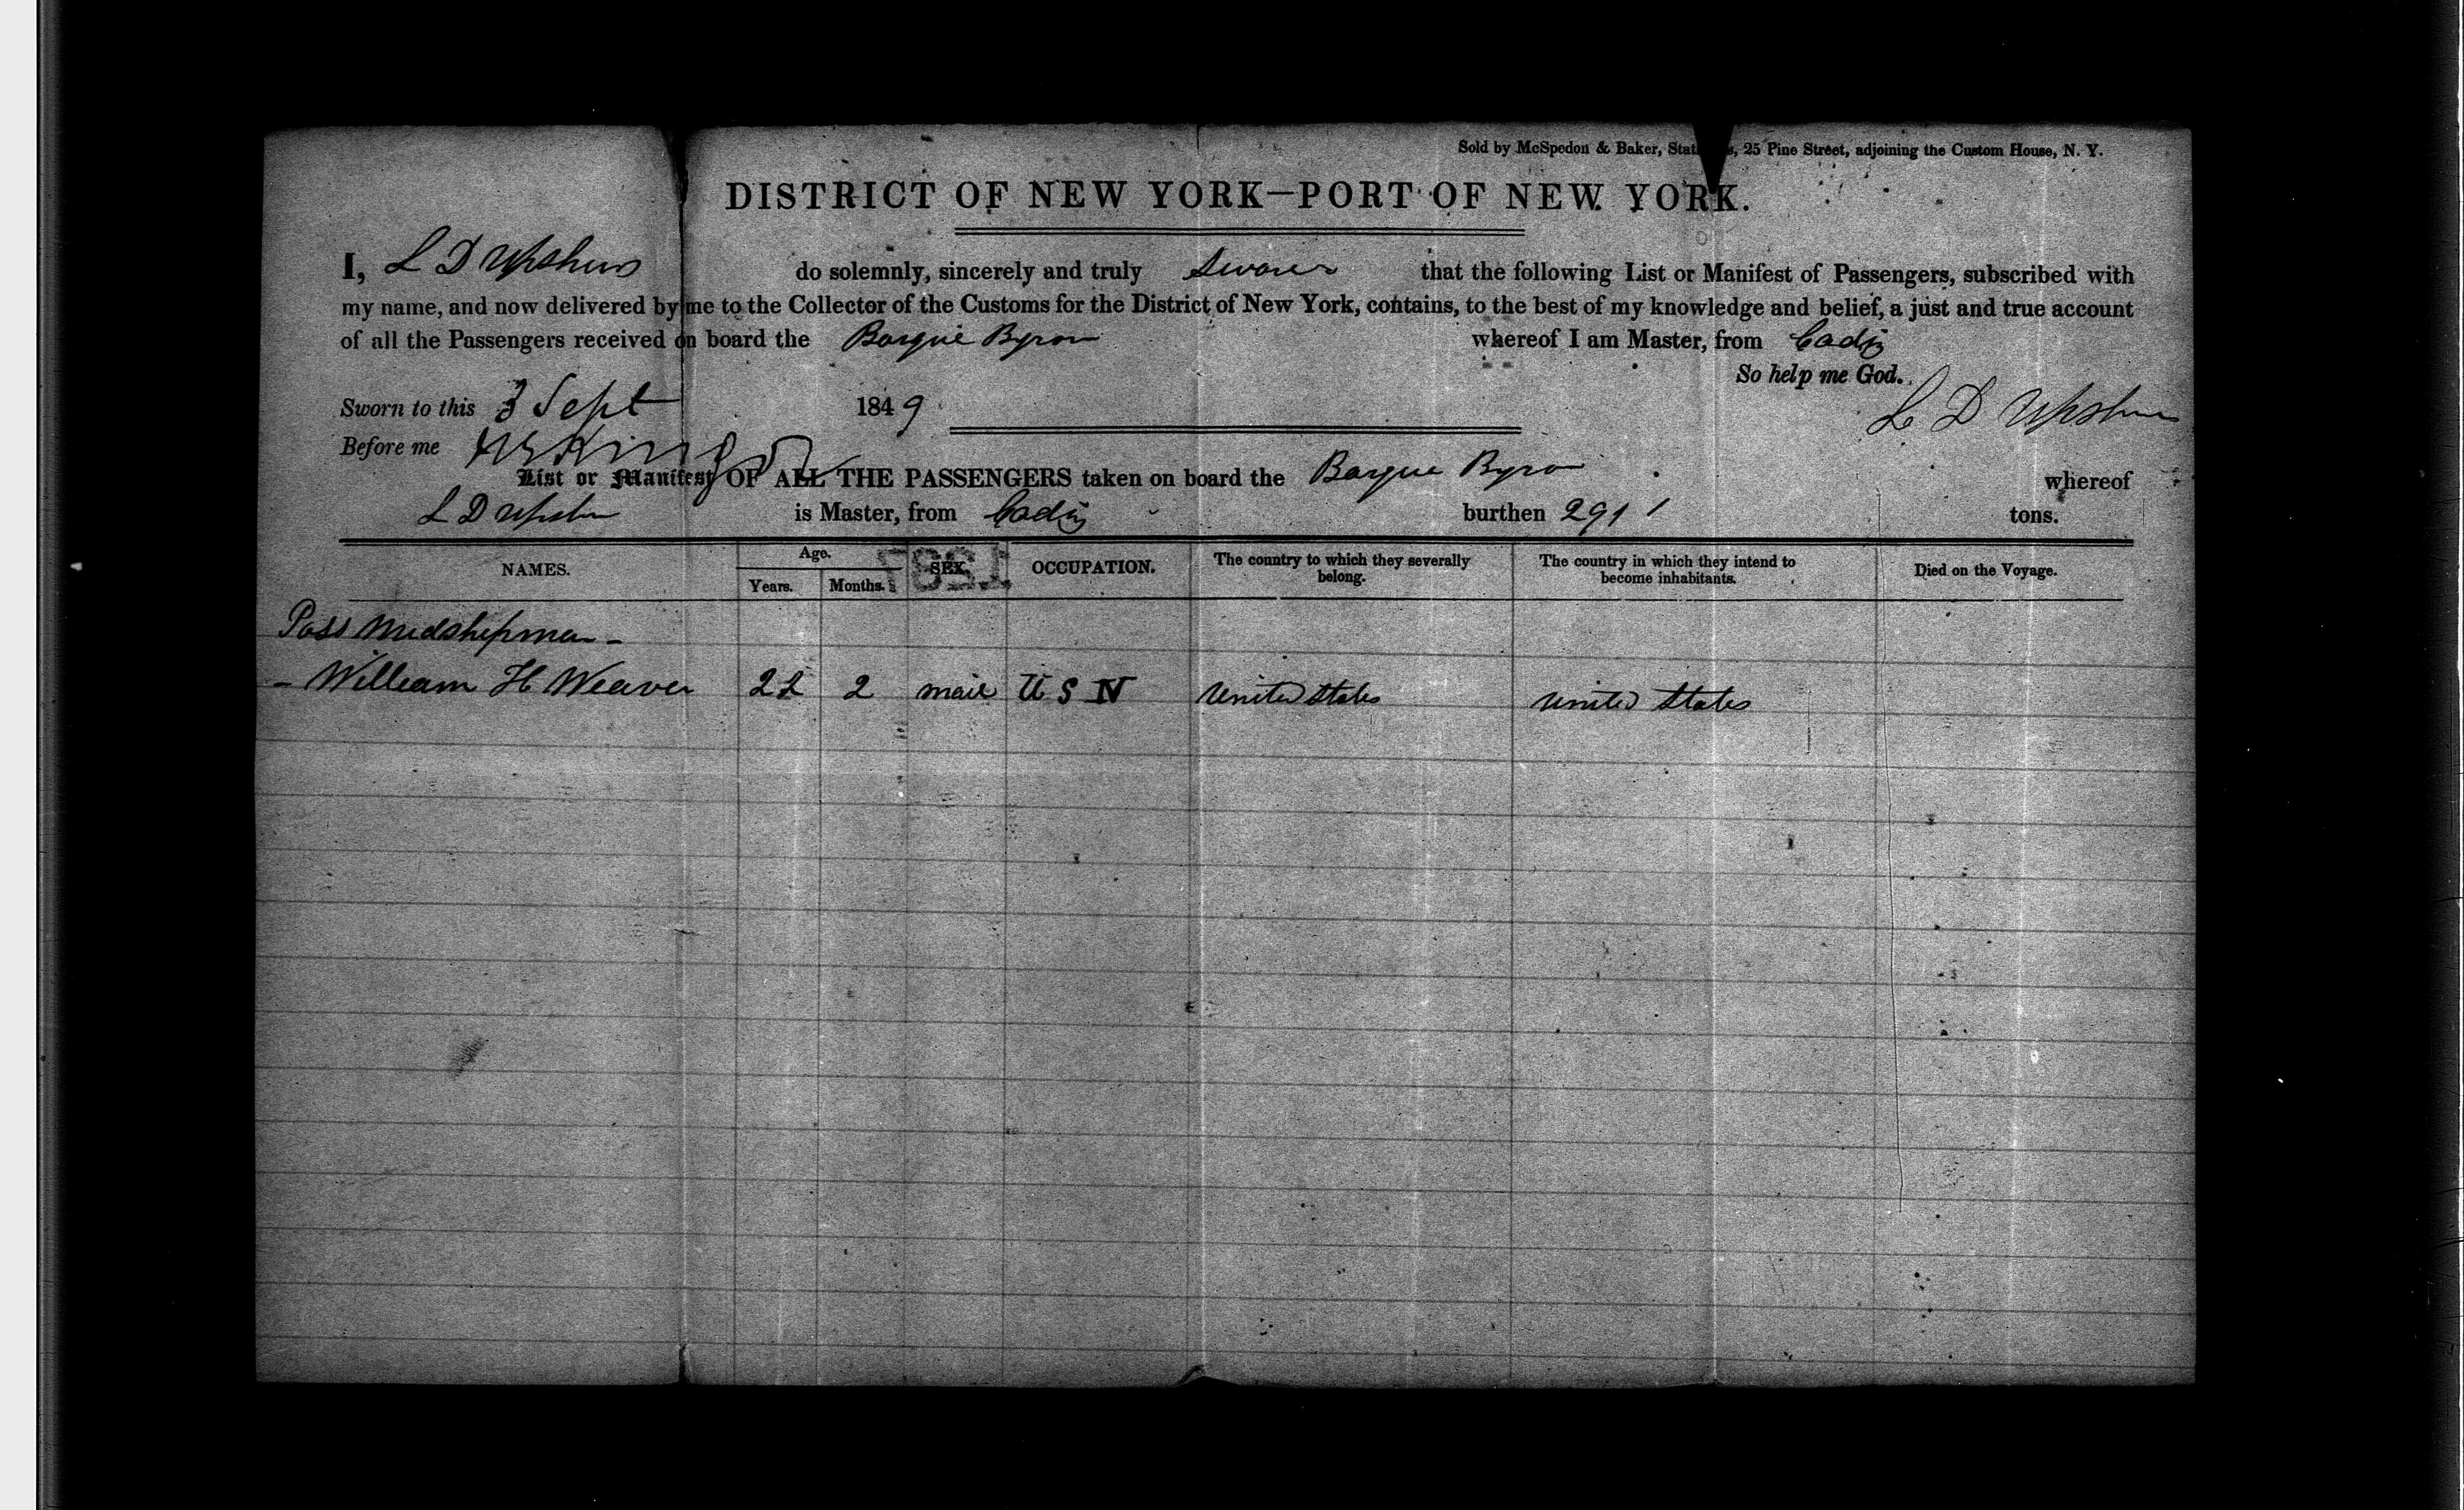 Sold by McSpedon & Baker, Stat s, 25 Pine Street, adjoining the Custom House, N. Y.
DISTRICT OF NEW YORK—PORT OF NEW YORK.
I, L D Upshur do solemnly, sincerely and truly Swear that the following List or Manifest of Passengers, subscribed with
my name, and now delivered by me to the Collector of the Customs for the District of New York, contains, to the best of my knowledge and belief, a just and true account
of all the Passengers received on board the Barque Byron whereof I am Master, from Cadiz
So help me God.
Sworn to this 3 Sept 1849 L D Upshur
Before me
List or Manifest OF ALL THE PASSENGERS taken on board the Barque Byron whereof
L D Upshur is Master, from Cadiz burthen 291 tons.
NAMES. Age. Years. Months. SEX. OCCUPATION. The country to which they severally belong. The country in which they intend to become inhabitants. Died on the Voyage.
Pass Midshipman -
- William H Weaver 22 2 mail U S N United States United States